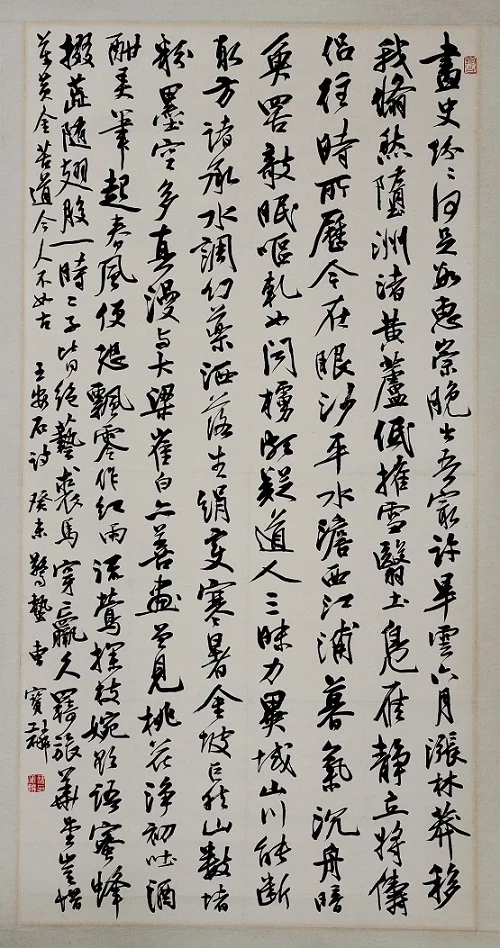 畫史紛紛何足數惠崇晚出吾最許旱雲六月漲林莽移
我翛然墮洲渚黃蘆低摧雪翳土凫雁靜立將儔
侶往時所歷今在眼沙平水澹西江浦暮氣沉舟暗
魚罟敧眠嘔軋如聞櫓頗疑道人三昧力異域山川能斷
取方諸承水調幻藥洒落生綃變寒暑金坡巨然山數堵
粉墨空多真漫与大梁崔白亦善畫曾見桃花淨初吐酒
酣弄筆起春風便恐飄零作紅雨流鶯探枝婉欲語蜜蜂
掇蕊随翅股一時二子皆絕藝裘馬穿羸久羈旅華堂豈惜
萬黃金苦道今人不如古 王安石詩 癸未驚蟄 曹寶麟